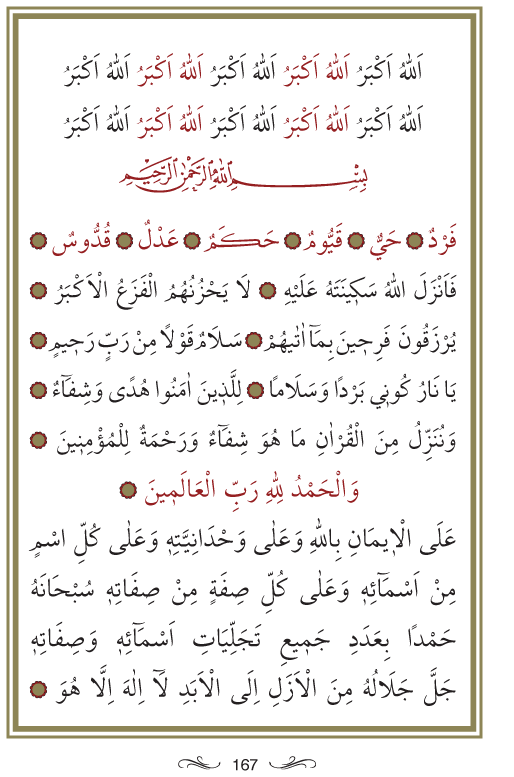 اَللّٰهُ اَكْبَرُ اَللّٰهُ اَكْبَرُ اَللّٰهُ اَكْبَرُ اَللّٰهُ اَكْبَرُ اَللّٰهُ اَكْبَرُ
اَللّٰهُ اَكْبَرُ اَللّٰهُ اَكْبَرُ اَللّٰهُ اَكْبَرُ اَللّٰهُ اَكْبَرُ اَللّٰهُ اَكْبَرُ
بِسْمِ اللّٰهِ الرَّحْمٰنِ الرَّحِيمِ
فَرْدٌ حَيٌّ قَيُّومٌ حَكَمٌ عَدْلٌ قُدُّوسٌ
فَاَنْزَلَ اللّٰهُ سَكٖينَتَهُ عَلَيْهِ لَا يَحْزُنُهُمُ الْفَزَعُ الْاَكْبَرُ
يُرْزَقُونَ فَرِحٖينَ بِمَٓا اٰتٰيهُمْ سَلَامٌ قَوْلًا مِنْ رَبٍّ رَحٖيمٍ
يَا نَارُ كُونٖي بَرْدًا وَسَلَامًا لِلَّذٖينَ اٰمَنُوا هُدًى وَشِفَٓاءٌ
وَنُنَزِّلُ مِنَ الْقُرْاٰنِ مَا هُوَ شِفَٓاءٌ وَرَحْمَةٌ لِلْمُؤْمِنٖينَ
وَالْحَمْدُ لِلّٰهِ رَبِّ الْعَالَمٖينَ
عَلَى الْاٖيمَانِ بِاللّٰهِ وَعَلٰى وَحْدَانِيَّتِهٖ وَعَلٰى كُلِّ اسْمٍ
مِنْ اَسْمَٓائِهٖ وَعَلٰى كُلِّ صِفَةٍ مِنْ صِفَاتِهٖ سُبْحَانَهُ
حَمْدًا بِعَدَدِ جَمٖيعِ تَجَلِّيَاتِ اَسْمَٓائِهٖ وَصِفَاتِهٖ
جَلَّ جَلَالُهُ مِنَ الْاَزَلِ اِلَى الْاَبَدِ لَٓا اِلٰهَ اِلَّا هُوَ
167